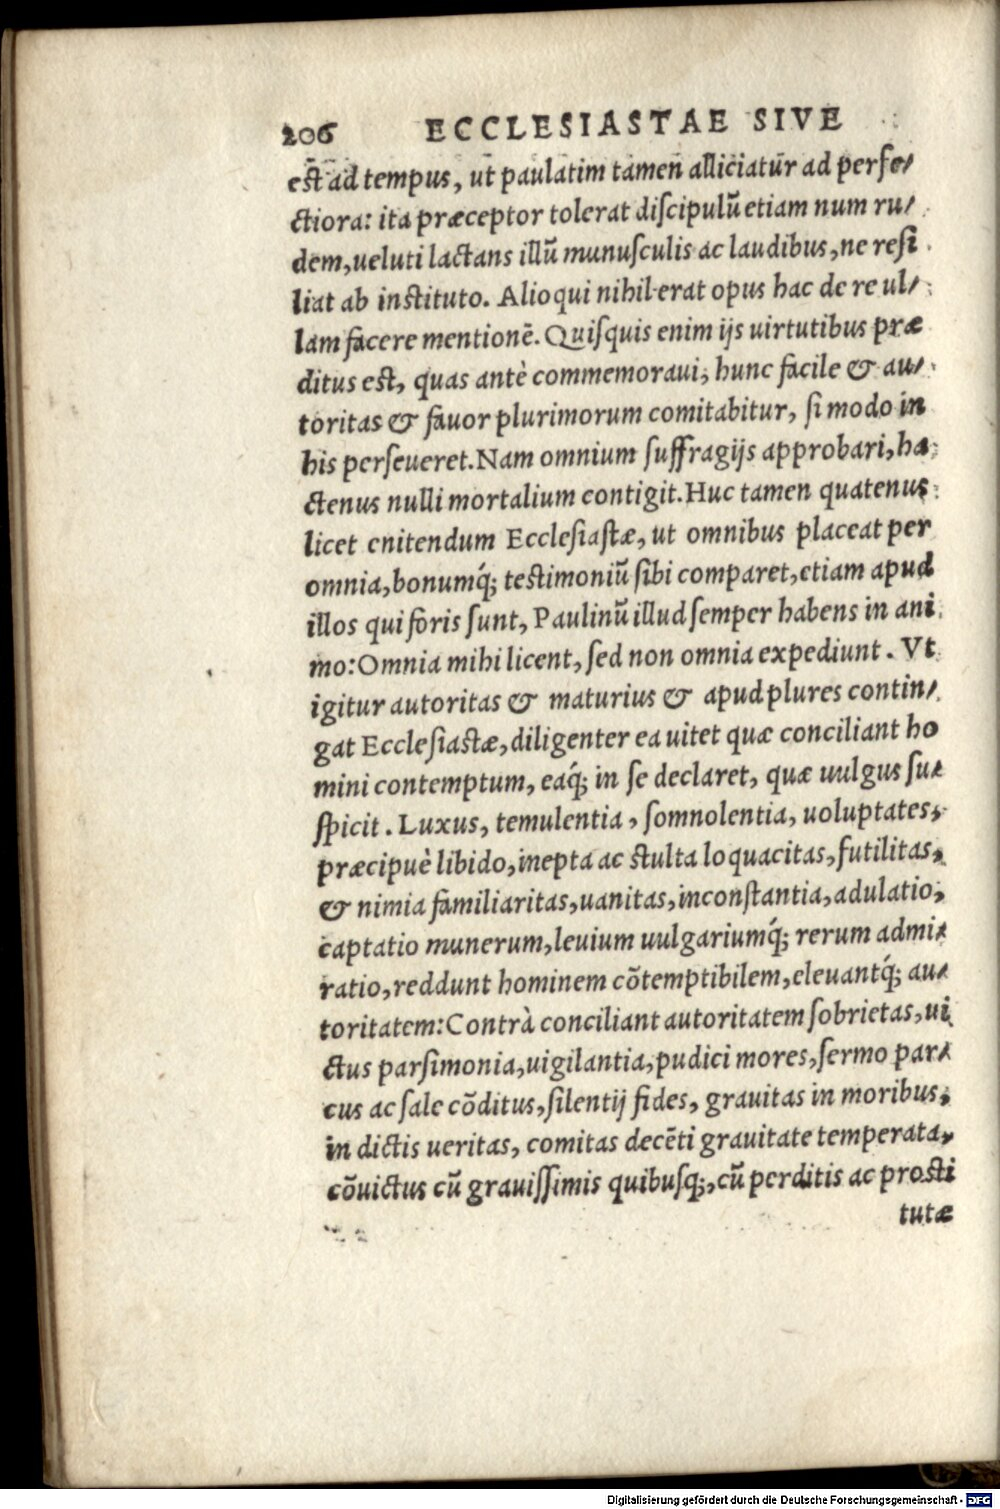 206 ECCLESIASTAE SIVE
est ad tempus, ut paulatim tamen alliciatur ad perfe⸗
ctiora: ita præceptor tolerat diſcipulũ etiam num ru⸗
dem, ueluti lactans illũ munuſculis ac laudibus, ne reſi
liat ab inſtituto. Alioqui nihil erat opus hac de re ul⸗
lam facere mentionẽ. Quiſquis enim ijs uirtutibus præ
ditus eſt, quas antè commemoraui, hunc facile & au⸗
toritas & fauor plurimorum comitabitur, ſi modo in
his perſeueret. Nam omnium ſuffragijs approbari, ha
ctenus nulli mortalium contigit. Huc tamen quatenus
licet enitendum Eccleſiaſtæ, ut omnibus placeat per
omnia, bonumq́; teſtimoniũ ſibi comparet, etiam apud
illos qui foris ſunt, Paulinũ illud ſemper habens in ani
mo: Omnia mihi licent, ſed non omnia expediunt. Vt
igitur autoritas & maturius & apud plures contin⸗
gat Eccleſiaſtæ, diligenter ea uitet quæ conciliant ho
mini contemptum, eaq́; in ſe declaret, quæ uulgus ſu⸗
ſpicit. Luxus, temulentia, ſomnolentia, uoluptates,
præcipuè libido, inepta ac ſtulta loquacitas, futilitas,
& nimia familiaritas, uanitas, inconſtantia, adulatio,
captatio munerum, leuium uulgariumq́; rerum admi⸗
ratio, reddunt hominem cõtemptibilem, eleuantq́; au⸗
toritatem: Contrà conciliant autoritatem ſobrietas, ui
ctus parſimonia, uigilantia, pudici mores, ſermo par⸗
cus ac ſale cõditus, ſilentij fides, grauitas in moribus,
in dictis ueritas, comitas decẽti grauitate temperata,
cõuictus cũ grauiſſimis quibuſq;, cũ perditis ac proſti
tutæ
Digitalisierung gefördert durch die Deutsche Forschungsgemeinschaft - DFG